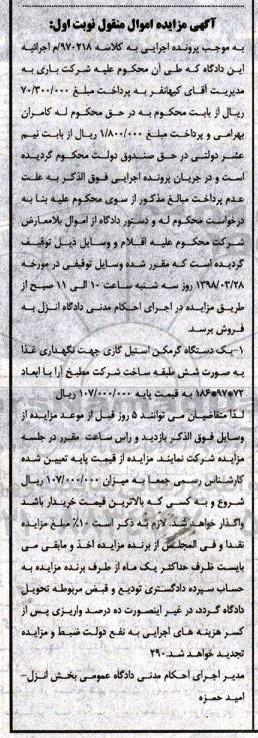 آگهی مزایده اموال منقول نوبت اول:
به موجب پرونده اجرایی به کلاسه ۹۷۰۲۱۸/م اجرائیه
این دادگاه که طی آن محکوم علیه شرکت باری به
مدیریت آقای کیهانفر به پرداخت مبلغ ۷۰/۳۰۰/۰۰۰
ریال از بابت محکوم به در حق محکوم له کامران
بهرامی و پرداخت مبلغ ۱/۸۰۰/۰۰۰ ریال از بابت نیم
عشر دولتی در حق صندوق دولت محکوم گردیده
است و در جریان پرونده اجرایی فوق الذکر به علت
عدم پرداخت مبالغ مذکور از سوی محکوم علیه بنا به
درخواست محکوم له و دستور دادگاه از اموال بلامعارض
شرکت محکوم علیه اقلام و وسایل ذیل توقیف
گردیده است که مقرر شده وسایل توقیفی در مورخه
۱۳۹۸/۰۳/۲۸ روز سه شنبه ساعت ۱۰ الی ۱۱ صبح از
طریق مزایده در اجرای احکام مدنی دادگاه انزل به
فروش برسد.
۱-یک دستگاه گرمکن استیل گازی جهت نگهداری غذا
به صورت شش طبقه ساخت شرکت مطبخ آرا با ابعاد
۷۲*۹۷*۱۸۶ به قیمت پایه ۱۰۷/۰۰۰/۰۰۰ ریال
لذا متقاضیان می توانند ۵ روز قبل از موعد مزایده از
وسایل فوق الذکر بازدید و راس ساعت مقرر در جلسه
مزایده شرکت نمایند. مزایده از قیمت پایه تعیین شده
کارشناس رسمی جمعا به میزان ۱۰۷/۰۰۰/۰۰۰ ریال
شروع و به کسی که بالاترین قیمت خریدار باشد
واگذار خواهد شد. لازم به ذکر است ۱۰٪ مبلغ مزایده
نقدا و فی المجلس از برنده مزایده اخذ و مابقی می
بایست ظرف حداکثر یک ماه از طرف برنده مزایده به
حساب سپرده دادگستری تودیع و قبض مربوطه تحویل
دادگاه گردد، در غیر اینصورت ده درصد واریزی پس از
کسر هزینه های اجرایی به نفع دولت ضبط و مزایده
تجدید خواهد شد.۲۹۰
مدیر اجرای احکام مدنی دادگاه عمومی بخش انزل-
امید حمزه